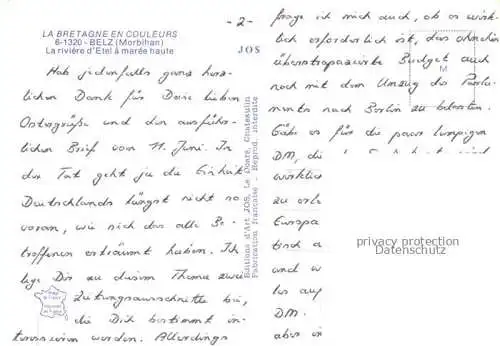 LA BRETAGNE EN COULEURS
6-1320 - BELZ (Morbihan)
La rivière d'Etel à marée haute
-2-
JOS
Hab jedenfalls ganz herz-
lichen Dank für Deine lieben
Ostergrüße und den ausführ-
lichen Brief vom 11. Juni. In
der Tat geht ja die Einheit
Deutschlands längst nicht so
voran, wie sich das alle Be-
troffenen erträumt haben. Ich
lege Dir zu diesem Thema zwei
Zeitungsausschnitte bei,
die Dich bestimmt in-
teressieren werden. Allerdings
Editions d'Art JOS, Le Doaré, Châteaulin
Fabrication française - Reprod. interdite
frage ich mich auch, ob es wirk-
lich erforderlich ist, das ohnehin
überstrapazierte Budget auch
noch mit dem Umzug des Parla-
ments nach Berlin zu belasten.
Gäbe es für die paar lumpigen
DM, die
wirklich
zu erle
Europa
tisch a
und w
les auf
DM.
aber
privacy protection
Datenschutz